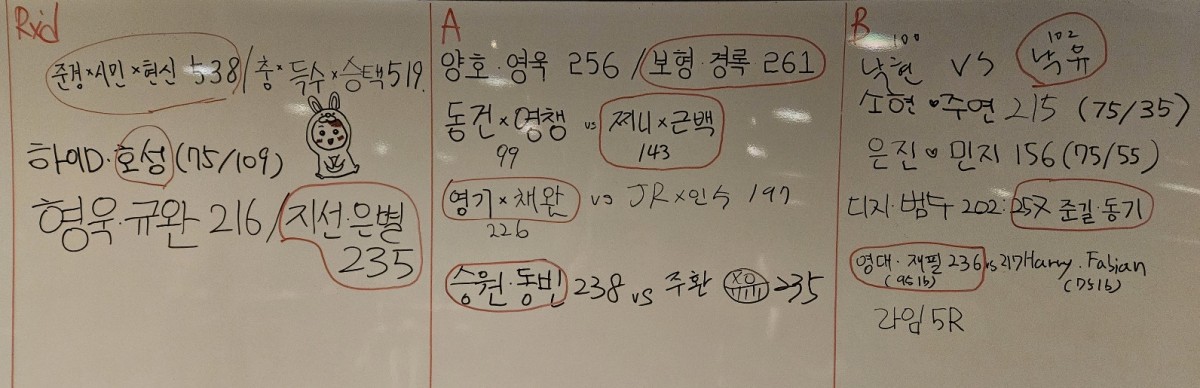 Rx'd
준경×시민×현신 538 / 충×득수×승택 519.
하이D·호성 (75/109)
형욱·규완 216 / 지선·은별
235
A
양호·영욱 256 / 보형·경록 261
동건×영챙 vs 찌니×근백
99 143
영기×채완 vs JR×인수 197
226
승원·동빈 238 vs 주환 235
B
100 102
낙현 VS 낙유
소현♥주연 215 (75/35)
은진♥민지 156 (75/55)
디지·범수 202:257 준길·동기
영대·재필 236 vs 217 Harry.Fabian
(95lb) (75lb)
라임 5R